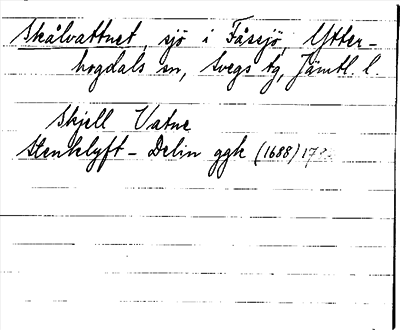 Skålvattnet, sjö i Fåssjö, Ytter-
hogdals sn, Svegs tg, Jämtl. l
Skjell Vatne
Stenklyft - Delin ggk (1688)